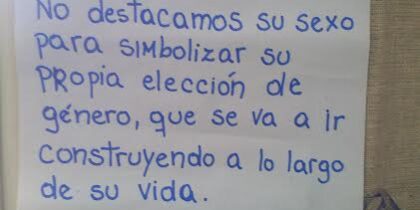 No destacamos su sexo
para SIMbolizar su
PROpia elección de
género, que se va a ir
construyendo a lo largo
de su vida.